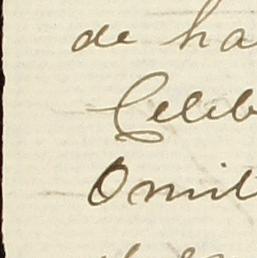 de ha
Celeb
Omit